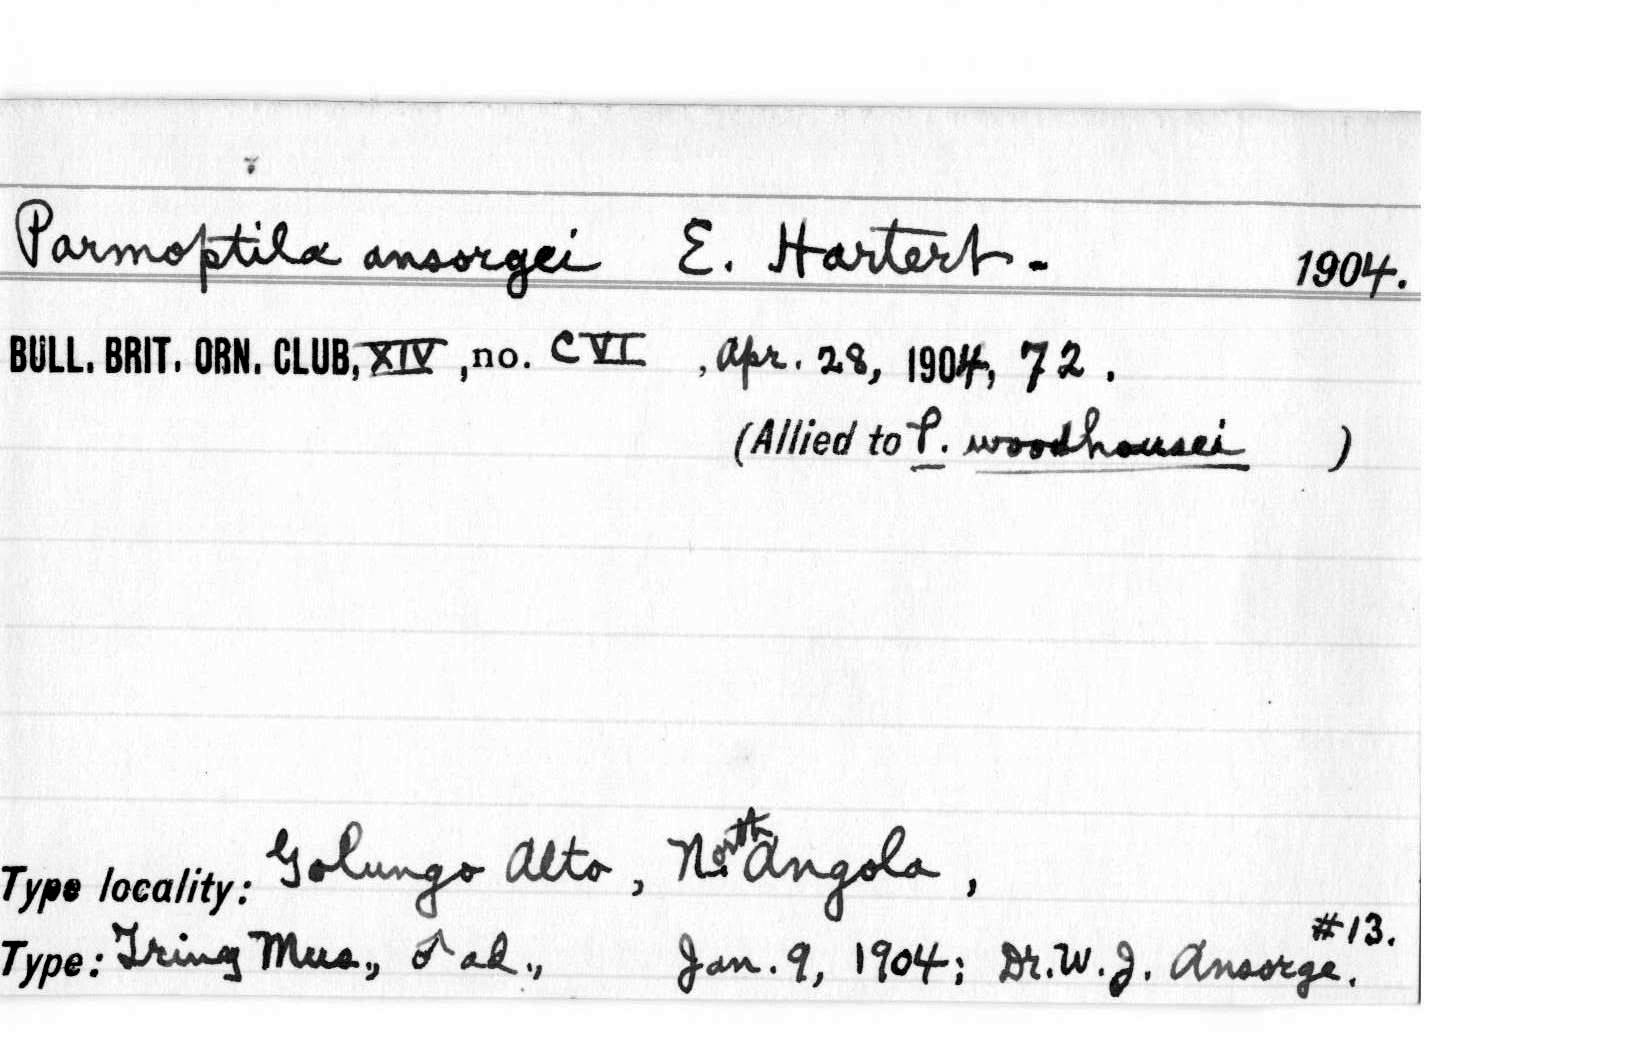 Parmoptila ansorgei E. Hartert - 1904.
BULL. BRIT. ORN. CLUB, XIV, no. CVI, Apr. 28, 1904, 72.
(Allied to P. woodhousei )
Type locality: Golungo Alto, North Angola,
#13.
Type: Tring Mus., ♂ ad., Jan. 9, 1904; Dr. W. J. Ansorge.